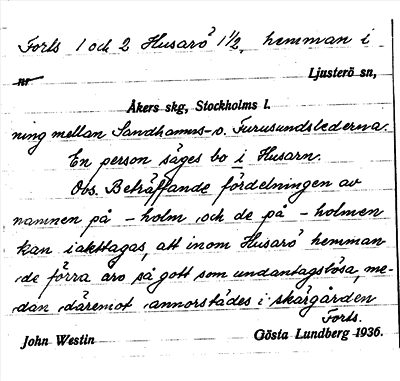 Forts 1 och 2 Husarö 1 1/2, hemman i
nr Ljusterö sn,
Åkers skg, Stockholms l.
ning mellan Sandhamns- o. Furusundslederna.
En person säges bo i Husarn.
Obs. Beträffande fördelningen av
namnen på -holm och de på -holmen
kan iakttagas, att inom Husarö hemman
de förra äro så gott som undantagslösa, me-
dan däremot annorstädes i skärgården
Forts.
John Westin Gösta Lundberg 1936.